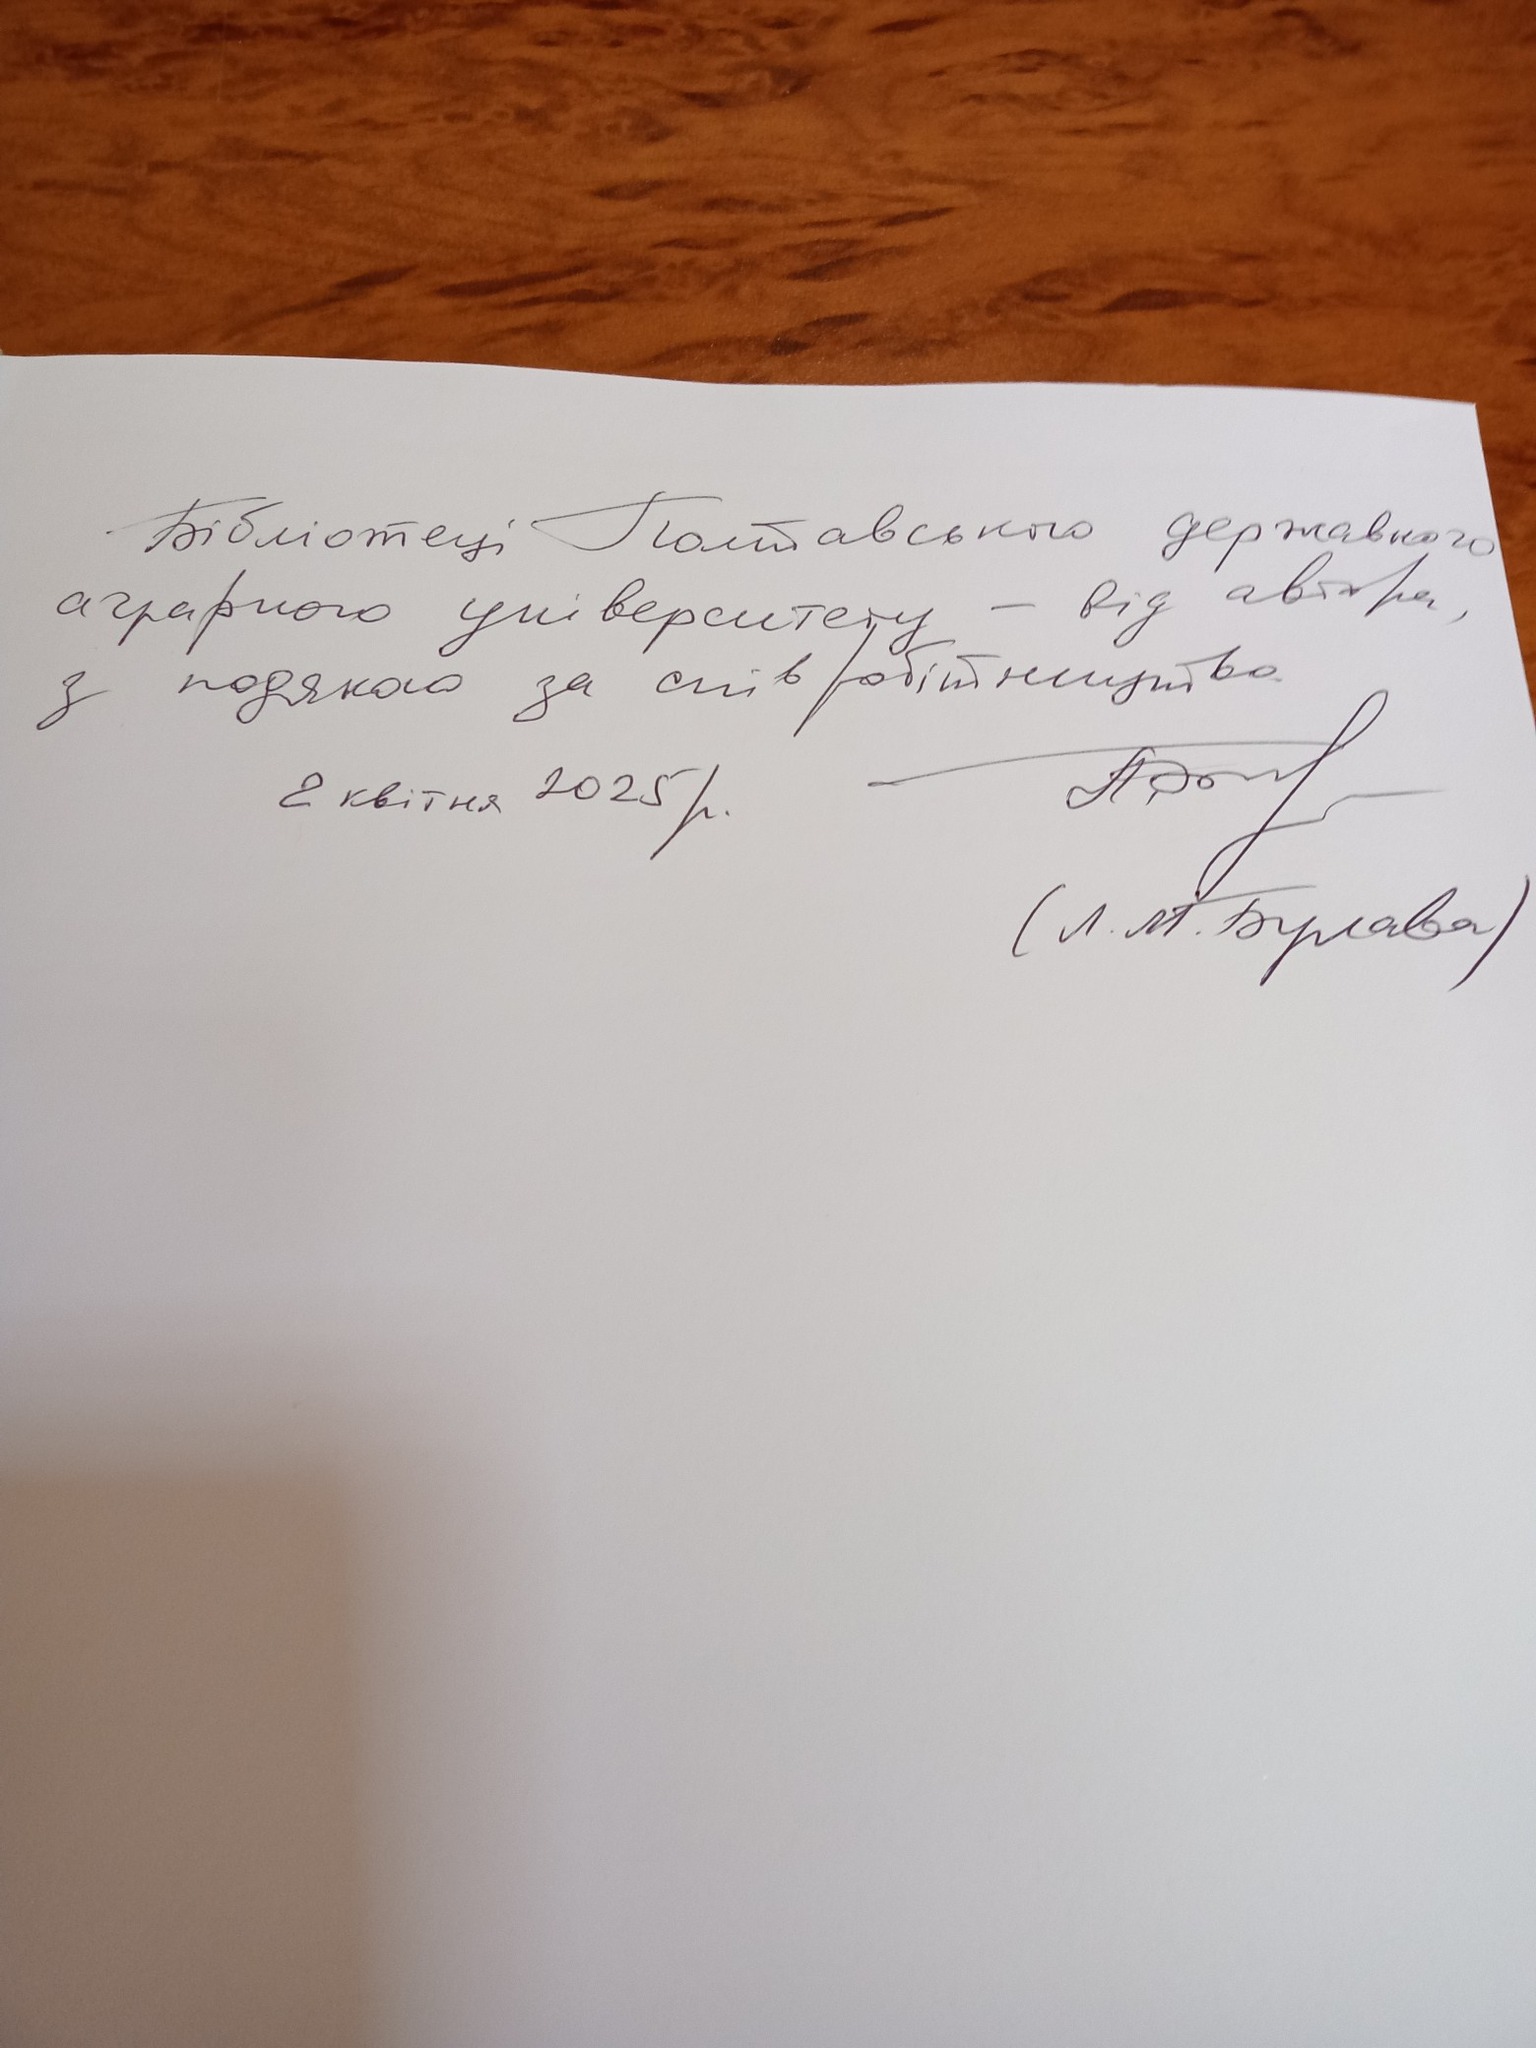 Бібліотеці Полтавського державного
аграрного університету – від автора,
з подякою за співробітництво.
2 квітня 2025 р.
(Л.М. Булава)